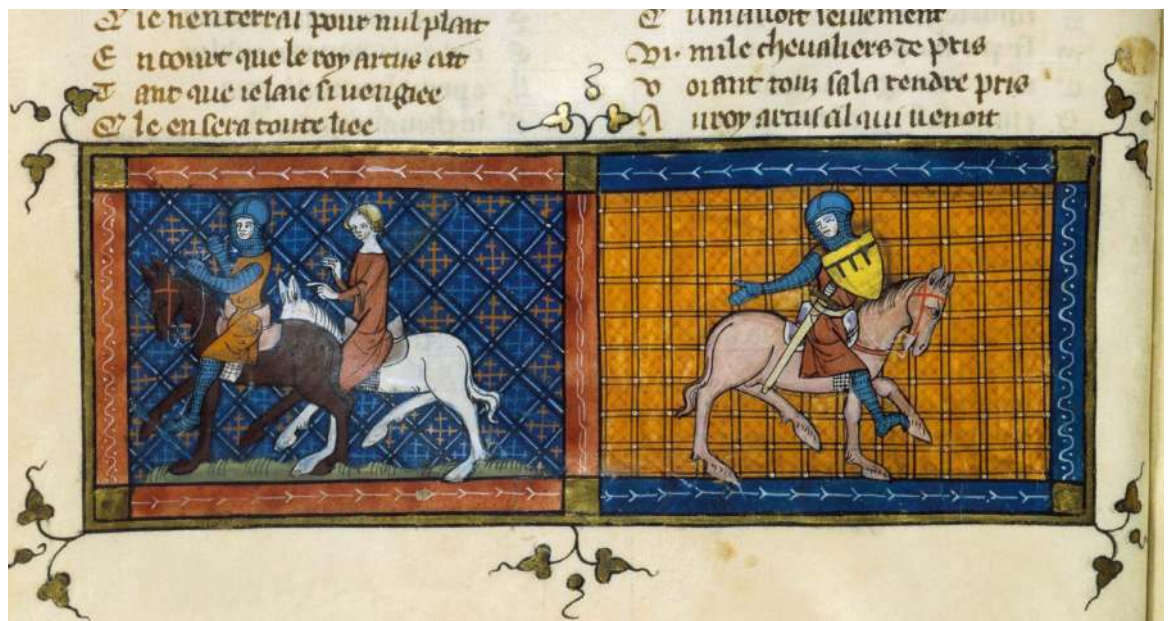 ie nenterrai pour nul plait
E n court que le roy artus ait
T ant que ie laie si uengiee
E le en sera toute liee
auoit seulement
Vi. mile cheualiers de pris
V oiant touz sala rendre pris
A u roy artus cil qui uenoit